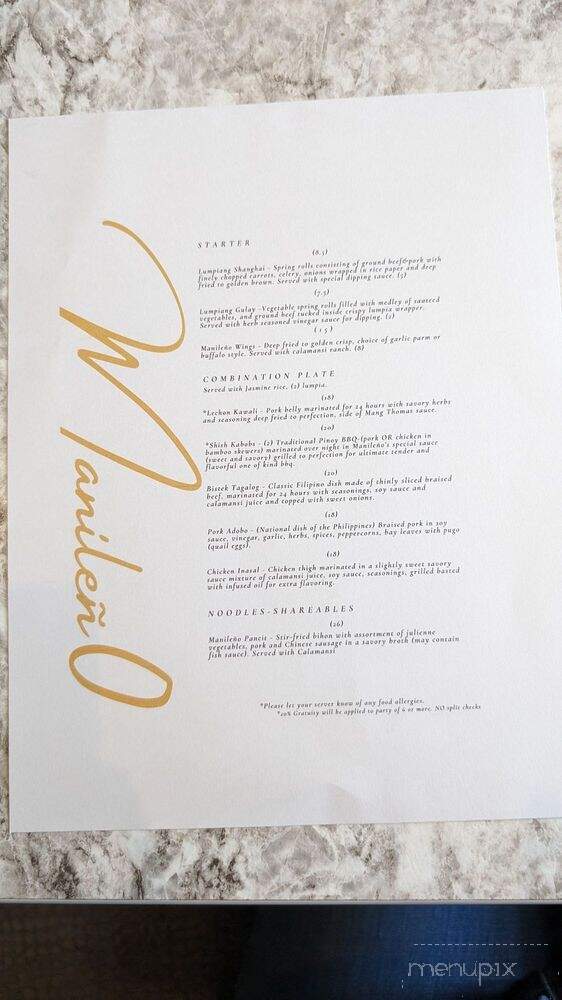 ManileñO
STARTER
(8.5)
Lumpiang Shanghai - Spring rolls consisting of ground beef&pork with
finely chopped carrots, celery, onions wrapped in rice paper and deep
fried to golden brown. Served with special dipping sauce. (5)
(7.5)
Lumpiang Gulay -Vegetable spring rolls filled with medley of sauteed
vegetables, and ground beef tucked inside crispy lumpia wrapper.
Served with herb seasoned vinegar sauce for dipping. (2)
(15)
Manileño Wings - Deep fried to golden crisp, choice of garlic parm or
buffalo style. Served with calamansi ranch. (8)
COMBINATION PLATE
Served with Jasmine rice, (2) lumpia.
(18)
*Lechon Kawali - Pork belly marinated for 24 hours with savory herbs
and seasoning deep fried to perfection, side of Mang Thomas sauce.
(20)
*Shish Kabobs - (2) Traditional Pinoy BBQ-(pork OR chicken in
bamboo skewers) marinated over night in Manileño's special sauce
(sweet and savory) grilled to perfection for ultimate tender and
flavorful one of kind bbq.
(20)
Bistek Tagalog - Classic Filipino dish made of thinly sliced braised
beef, marinated for 24 hours with seasonings, soy sauce and
calamansi juice and topped with sweet onions.
(18)
Pork Adobo - (National dish of the Philippines) Braised pork in soy
sauce, vinegar, garlic, herbs, spices, peppercorns, bay leaves with pugo
(quail eggs).
(18)
Chicken Inasal - Chicken thigh marinated in a slightly sweet savory
sauce mixture of calamansi juice, soy sauce, seasonings, grilled basted
with infused oil for extra flavoring.
NOODLES-SHAREABLES
(26)
Manileño Pancit - Stir-fried bihon with assortment of julienne
vegetables, pork and Chinese sausage in a savory broth (may contain
fish sauce). Served with Calamansi
*Please let your server know of any food allergies.
*20% Gratuity will be applied to party of 6 or more. NO split checks
menupix